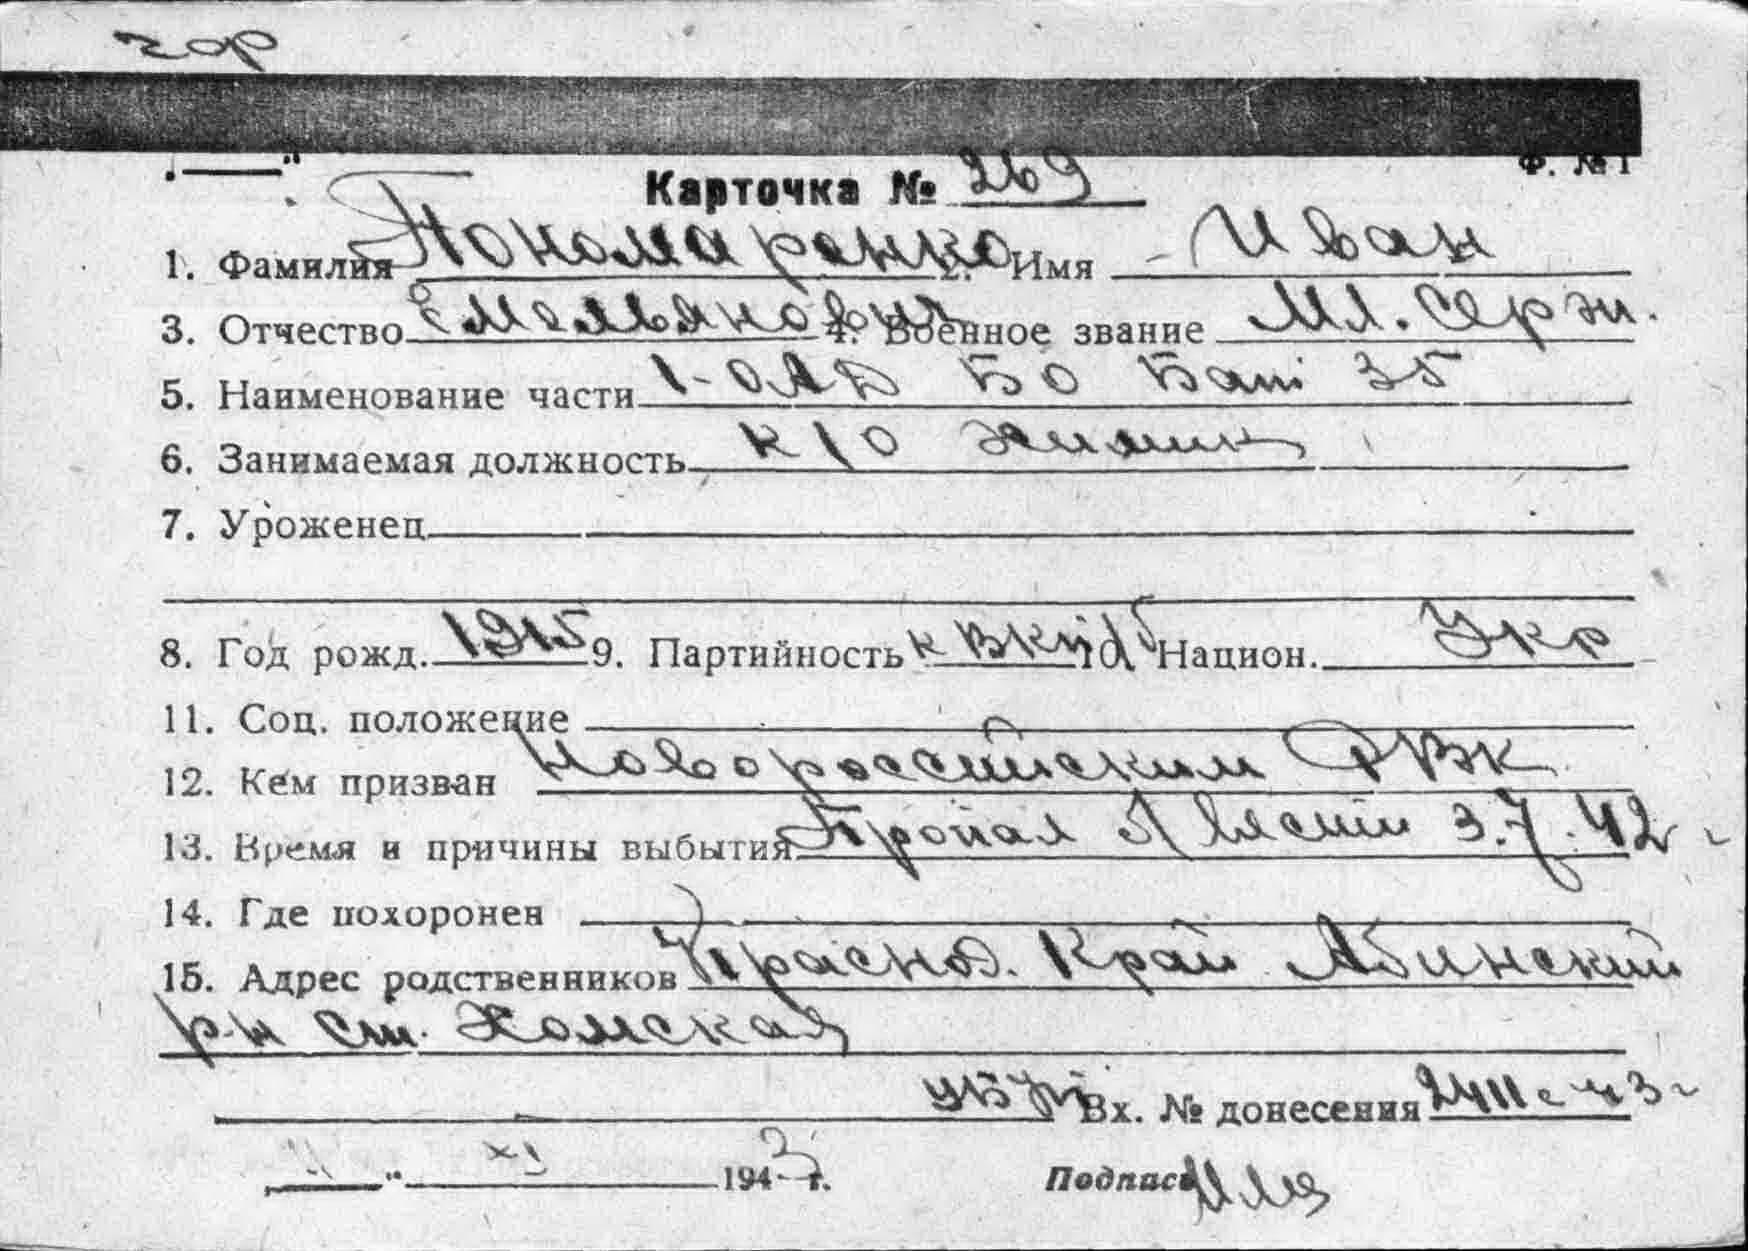 чор
Ф. № 1
Карточка № 269
1. Фамилия Пономаренко 2. Имя Иван
3. Отчество Емельянович 4. Военное звание Мл. Серж.
5. Наименование части 1-ОАД БО Бат 35
6. Занимаемая должность к/о химик
7. Уроженец
8. Год рожд. 1915 9. Партийность к ВКП/б 10. Национ. Укр
11. Соц. положение
12. Кем призван Новороссийским РВК
13. Время и причины выбытия Пропал б/вести 3.7.42 г
14. Где похоронен
15. Адрес родственников Краснод. Край Абинский
р-н ст. Холмская
Вх. № донесения 2411с 43 г
" XI 1943 г.
Подпись